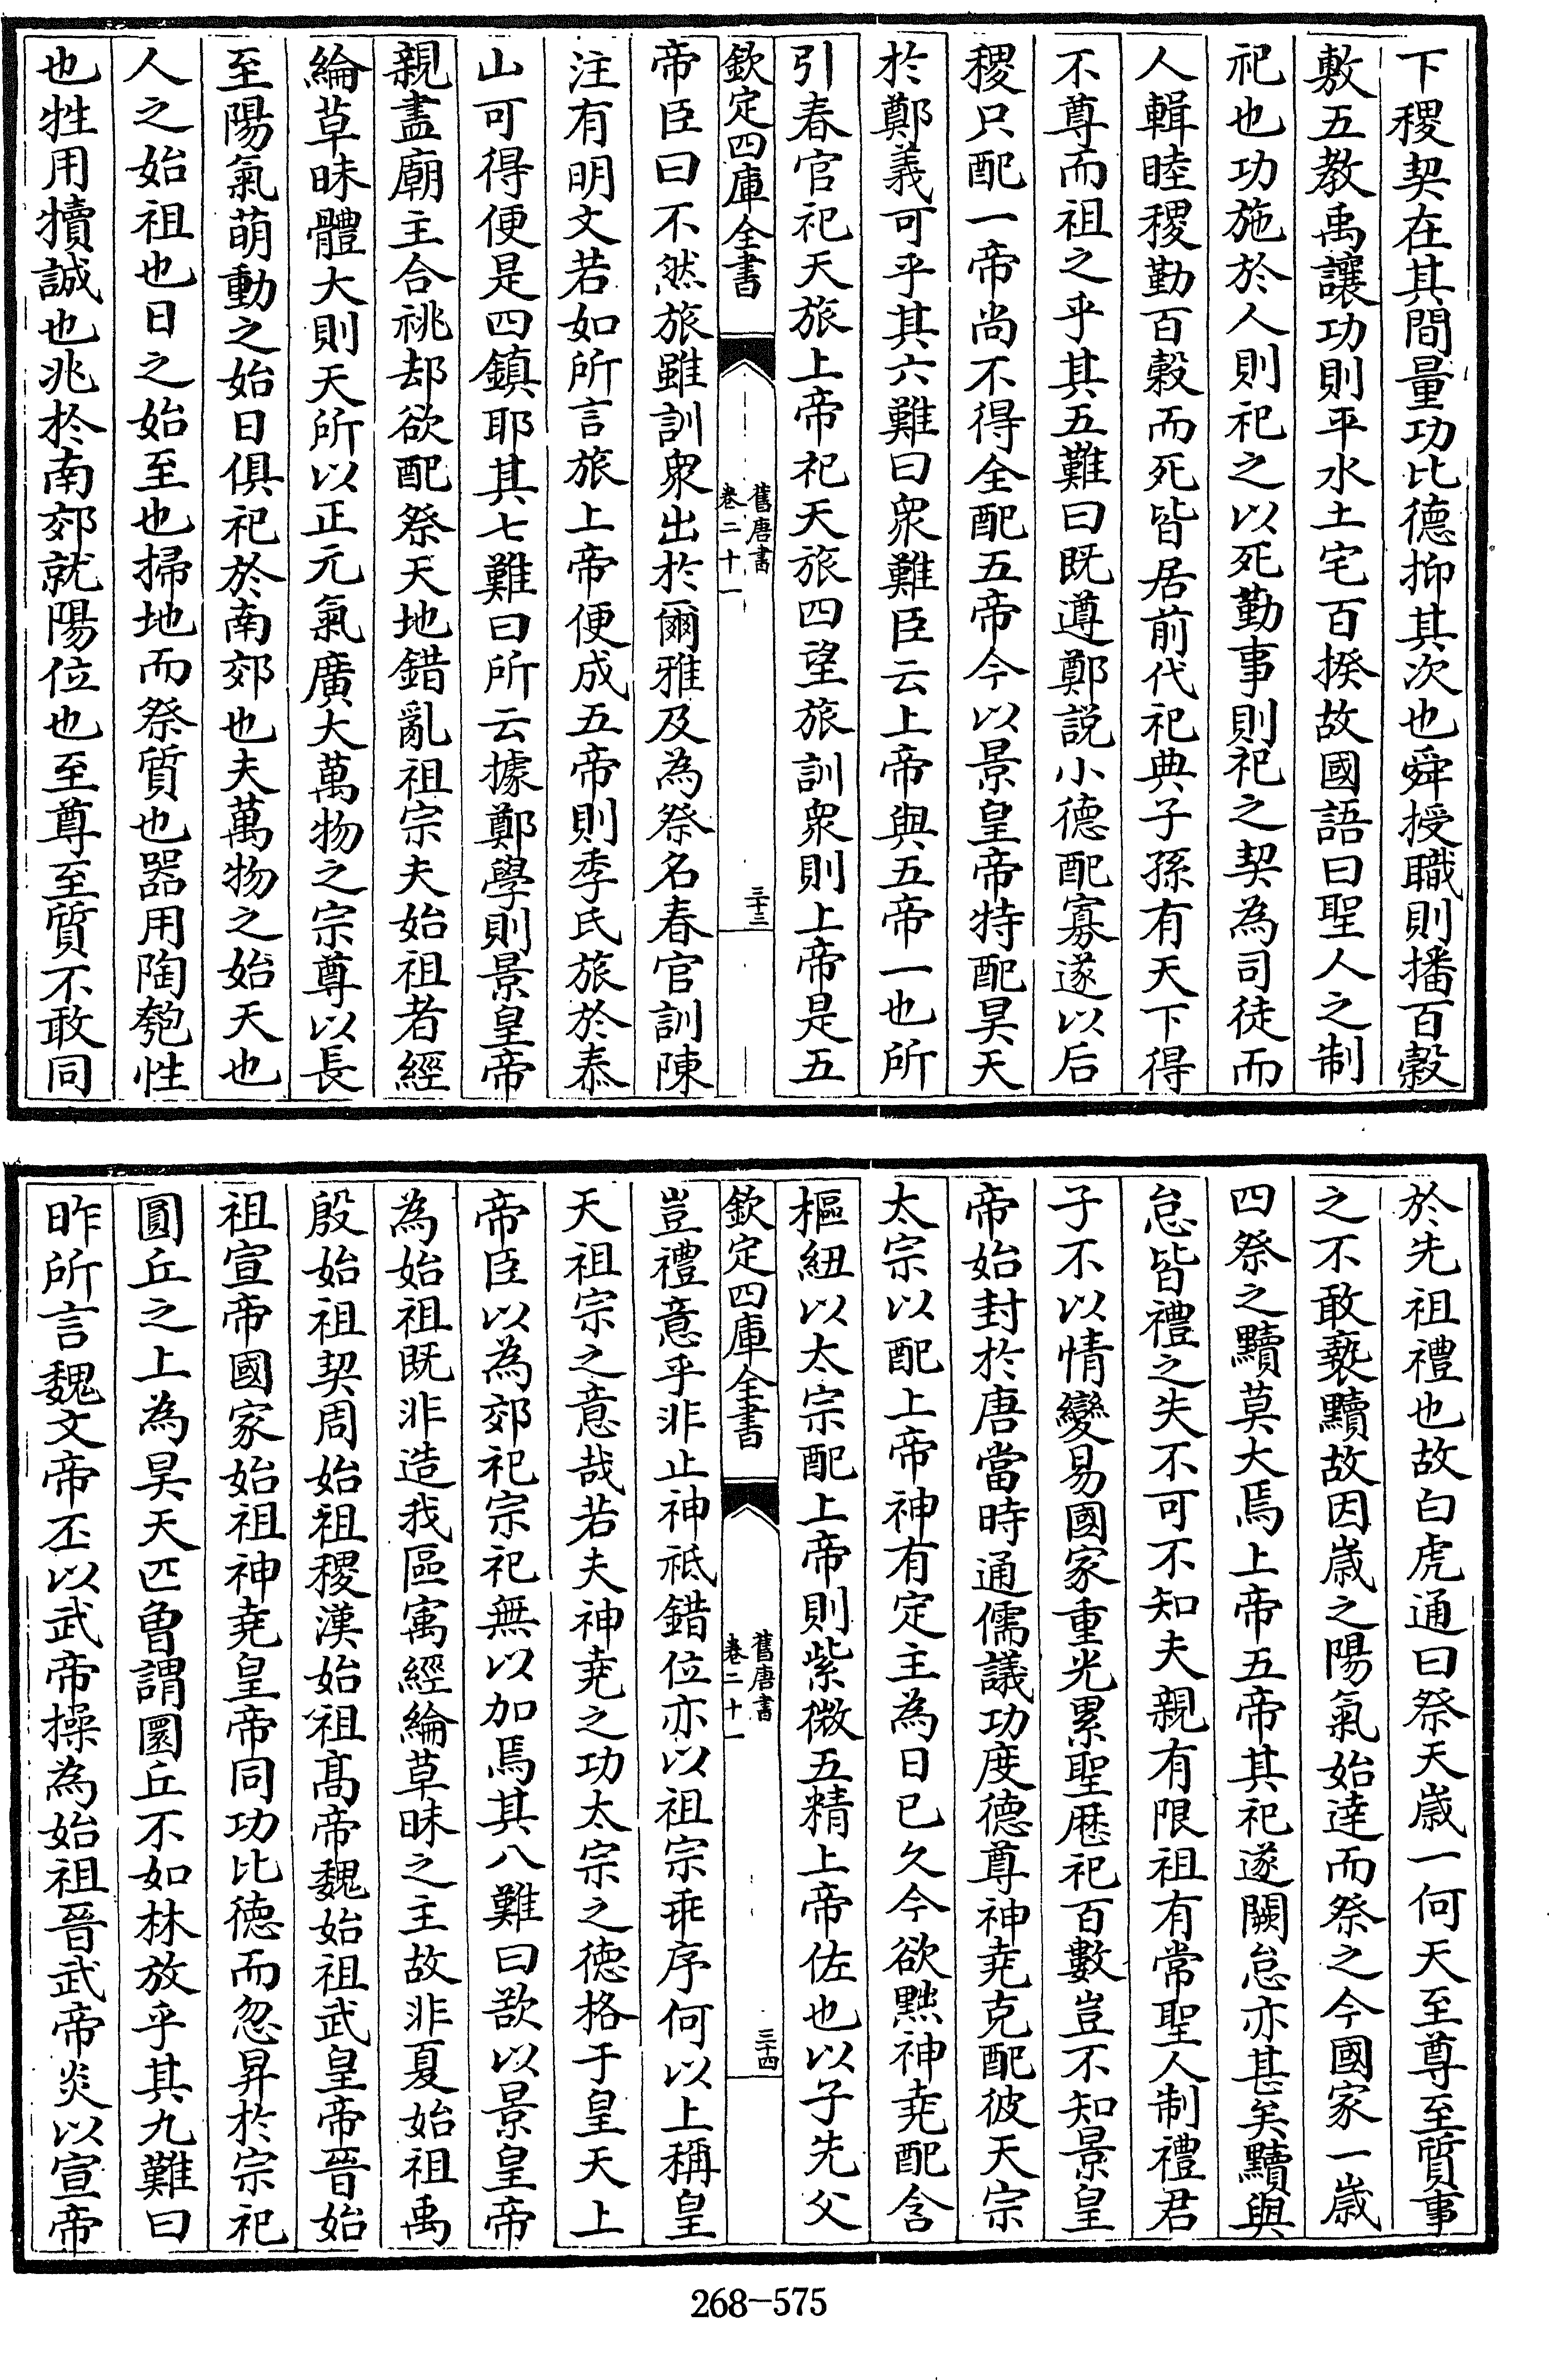 下稷契在其間量功比德抑其次也舜授職則播百穀
敷五教禹讓功則平水土宅百揆故國語曰聖人之制
祀也功施於人則祀之以死勤事則祀之契為司徒而
人輯睦稷勤百穀而死皆居前代祀典子孫有天下得
不尊而祖之乎其五難曰既遵鄭説小德配寡遂以后
稷只配一帝尚不得全配五帝今以景皇帝特配昊天
於鄭義可乎其六難曰衆難臣云上帝與五帝一也所
引春官祀天旅上帝祀天旅四望旅訓衆則上帝是五
欽定四庫全書
舊唐書
卷二十一
三十三
帝臣曰不然旅雖訓衆出於爾雅及為祭名春官訓陳
注有明文若如所言旅上帝便成五帝則季氏旅於泰
山可得便是四鎮耶其七難曰所云據鄭學則景皇帝
親盡廟主合祧却欲配祭天地錯亂祖宗夫始祖者經
綸草昧體大則天所以正元氣廣大萬物之宗尊以長
至陽氣萌動之始日俱祀於南郊也夫萬物之始天也
人之始祖也日之始至也掃地而祭質也器用陶匏性
也牲用犢誠也兆於南郊就陽位也至尊至質不敢同
於先祖禮也故白虎通曰祭天歳一何天至尊至質事
之不敢褻黷故因歳之陽氣始達而祭之今國家一歳
四祭之黷莫大焉上帝五帝其祀遂闕怠亦甚矣黷與
怠皆禮之失不可不知夫親有限祖有常聖人制禮君
子不以情變易國家重光累聖歴祀百數豈不知景皇
帝始封於唐當時通儒議功度德尊神堯克配彼天宗
太宗以配上帝神有定主為日已久今欲黜神堯配含
樞紐以太宗配上帝則紫微五精上帝佐也以子先父
欽定四庫全書
舊唐書
卷二十一
三十四
豈禮意乎非止神祇錯位亦以祖宗乖序何以上稱皇
天祖宗之意哉若夫神堯之功太宗之德格于皇天上
帝臣以為郊祀宗祀無以加焉其八難曰欲以景皇帝
為始祖既非造我區㝢經綸草昧之主故非夏始祖禹
殷始祖契周始祖稷漢始祖髙帝魏始祖武皇帝晉始
祖宣帝國家始祖神堯皇帝同功比德而忽昇於宗祀
圓丘之上為昊天匹曾謂圜丘不如林放乎其九難曰
昨所言魏文帝丕以武帝操為始祖晉武帝炎以宣帝
268-575